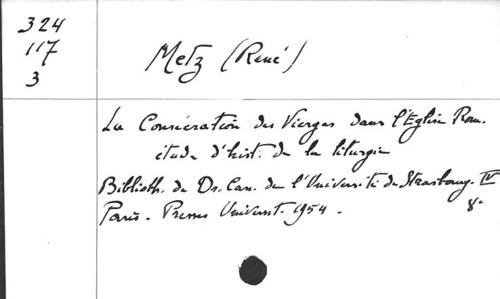 324
117
3
Metz (René)
La Consécration des Vierges dans l'Eglise Rom.
étude d'hist. de la liturgie
Biblioth. de Dr. Can. de l'Université de Strasbourg. IV
Paris. Presses Universit. 1954.
8°